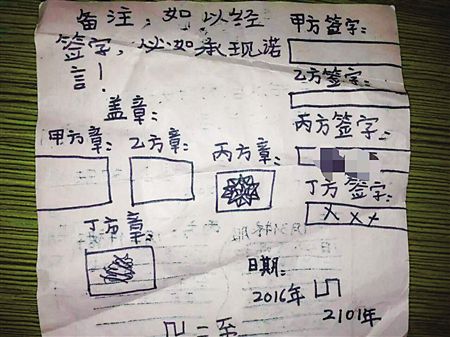 备注；如以经
签字，必如承现诺
言！
盖章：
甲方章：
乙方章：
丙方章：
丁方章：
甲方签字：
乙方签字：
丙方签字：
丁方签字：
xxx
日期：
2016年
2101年
二至